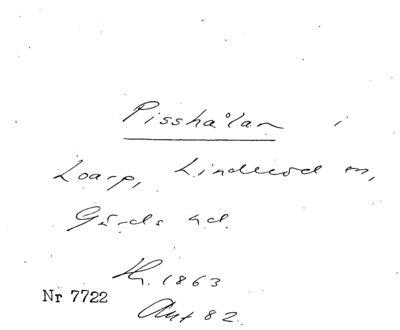 Pisshålan i
Loarp, Linderöd sn,
Gärds hd.
1863
Nr 7722
82.